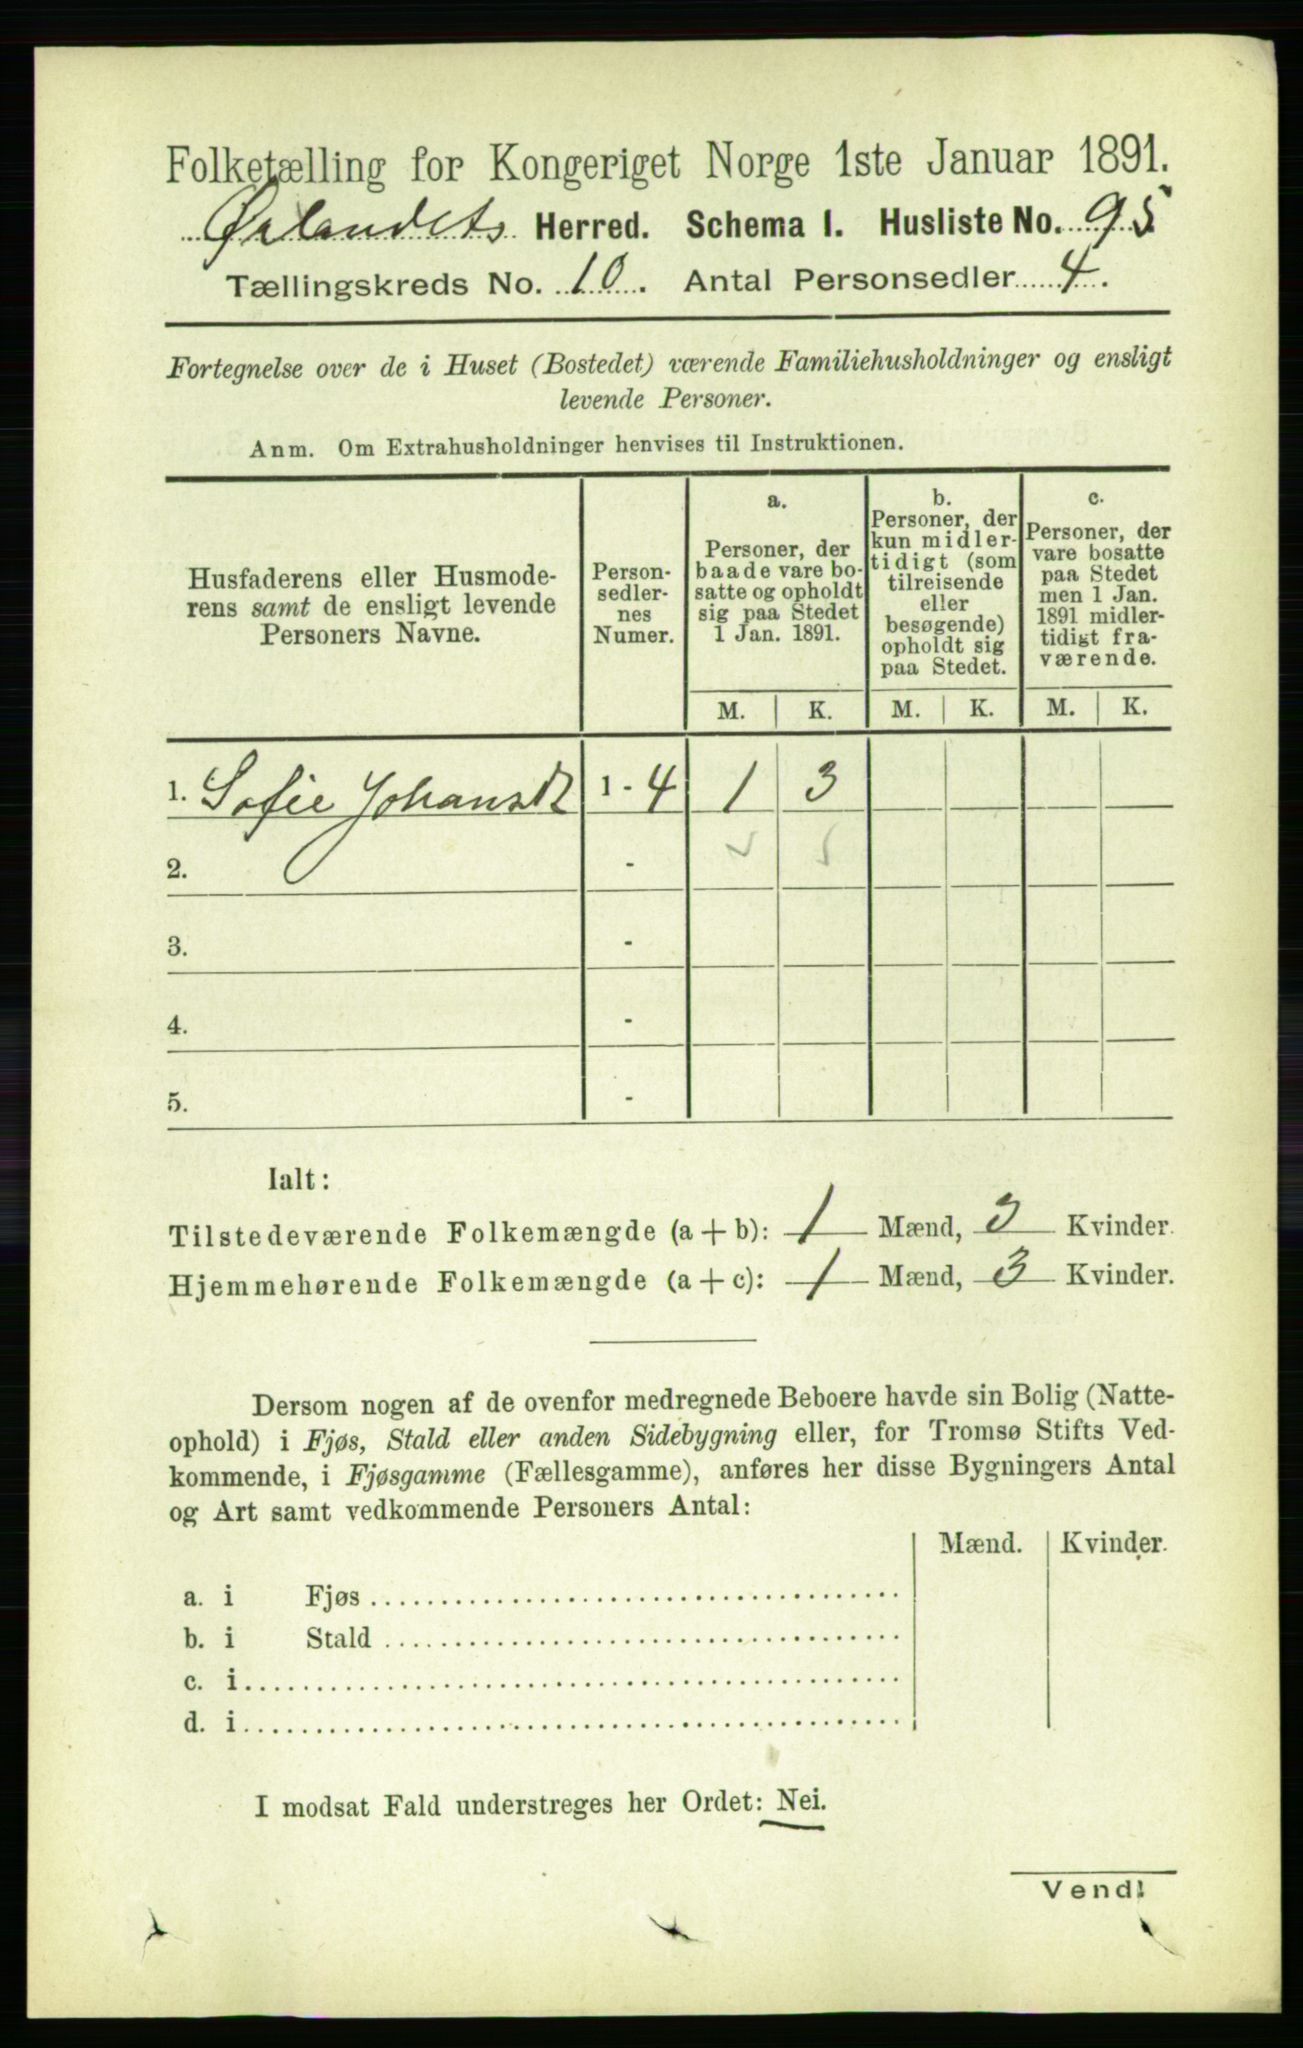 Folketælling for Kongeriget Norge 1ste Januar 1891.
Ørlandets Herred. Schema I. Husliste No. 95
Tællingskreds No. 10. Antal Personsedler 4.
Fortegnelse over de i Huset (Bostedet) værende Familiehusholdninger og ensligt
levende Personer.
Anm. Om Extrahusholdninger henvises til Instruktionen.
Husfaderens eller Husmode-
rens samt de ensligt levende
Personers Navne.
Person-
sedler-
nes
Numer.
a.
Personer, der
baade vare bo-
satte og opholdt
sig paa Stedet
1 Jan. 1891.
b.
Personer, der
kun midler-
tidigt (som
tilreisende
eller
besøgende)
opholdt sig
paa Stedet.
c.
Personer, der
vare bosatte
paa Stedet
men 1 Jan.
1891 midler-
tidigt fra-
værende.
M. K. M. K. M. K.
1. Sofie 1 - 4 1 3
2. -
3. -
4. -
5. -
Ialt:
Tilstedeværende Folkemængde (a + b): 1 Mænd, 3 Kvinder.
Hjemmehørende Folkemængde (a + c): 1 Mænd, 3 Kvinder.
Dersom nogen af de ovenfor medregnede Beboere havde sin Bolig (Natte-
ophold) i Fjøs, Stald eller anden Sidebygning eller, for Tromsø Stifts Ved-
kommende, i Fjøsgamme (Fællesgamme), anføres her disse Bygningers Antal
og Art samt vedkommende Personers Antal:
Mænd. Kvinder.
a. i Fjøs
b. i Stald
c. i
d. i
I modsat Fald understreges her Ordet: Nei.
Vend!